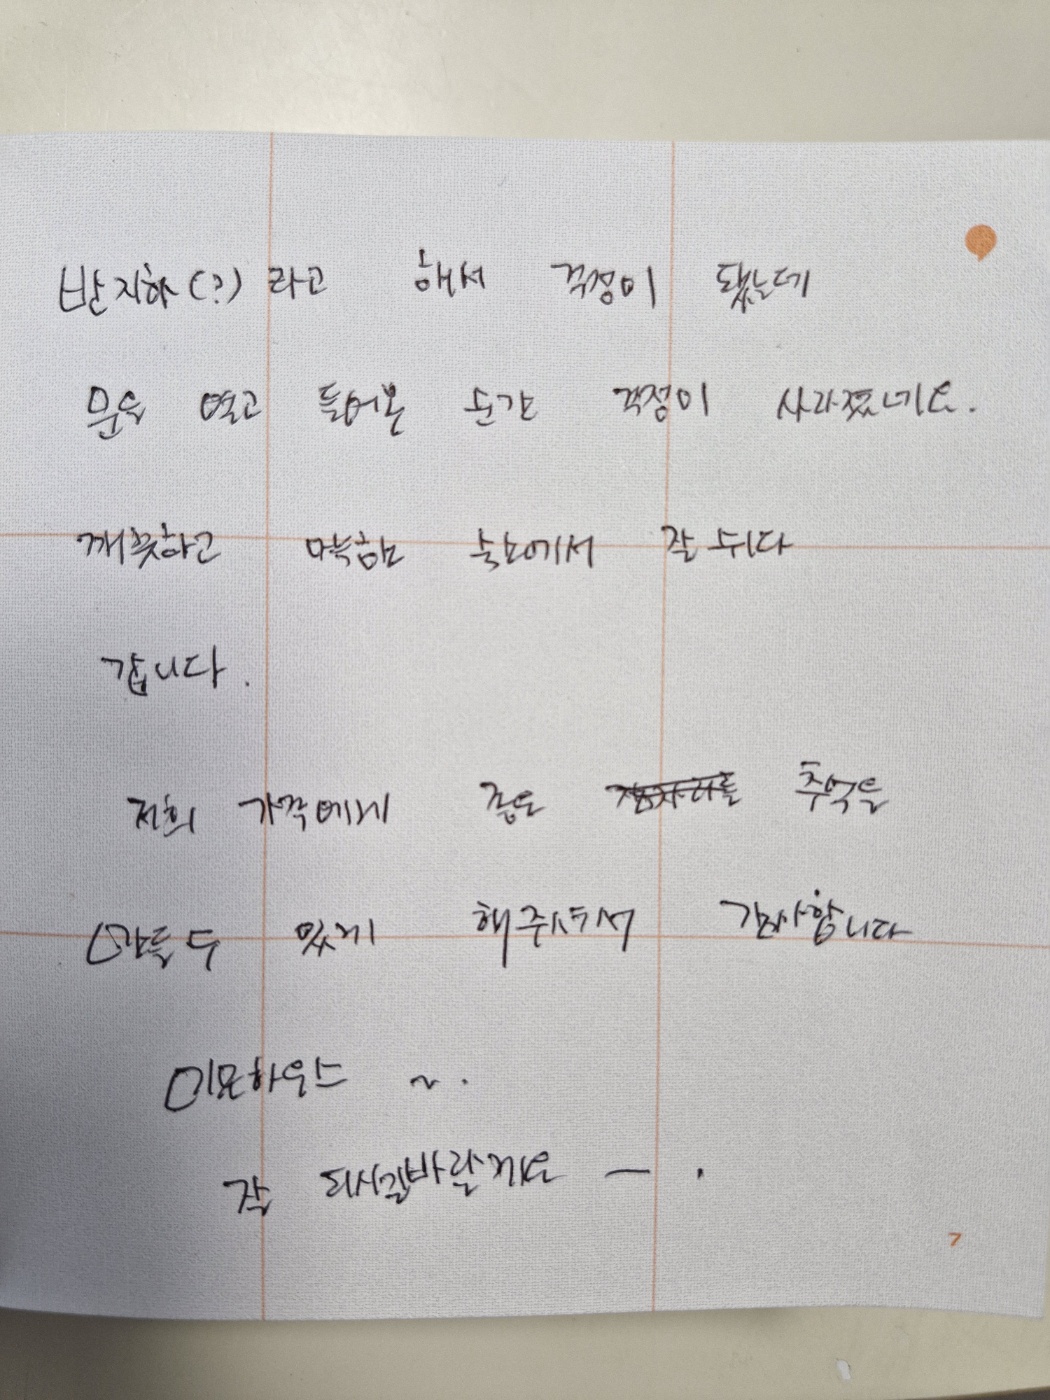 반지하(?)라고 해서 걱정이 됐는데
문을 열고 들어온 순간 걱정이 사라졌네요.
깨끗하고 아늑한 숙소에서 잘 쉬다
갑니다.
저희 가족에게 좋은 추억을
만들 수 있게 해주셔서 감사합니다
미모하우스 ~.
잘 되시길바랄게요 ー.
7